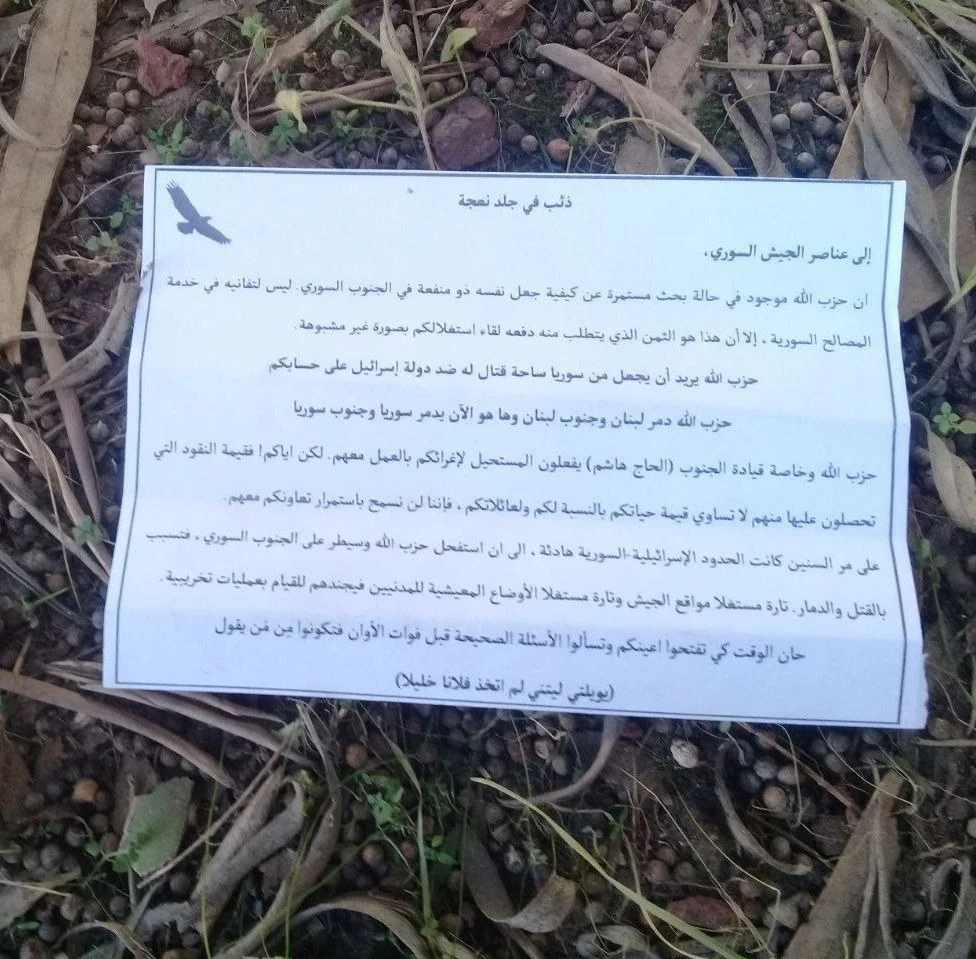 ذئب في جلد نعجة
إلى عناصر الجيش السوري،
ان حزب الله موجود في حالة بحث مستمرة عن كيفية جعل نفسه ذو منفعة في الجنوب السوري. ليس لتفانيه في خدمة
المصالح السورية ، إلا أن هذا هو الثمن الذي يتطلب منه دفعه لقاء استغلالكم بصورة غير مشبوهة.
حزب الله يريد أن يجعل من سوريا ساحة قتال له ضد دولة إسرائيل على حسابكم
حزب الله دمر لبنان وجنوب لبنان وها هو الآن يدمر سوريا وجنوب سوريا
حزب الله وخاصة قيادة الجنوب (الحاج هاشم) يفعلون المستحيل لإغرائكم بالعمل معهم. لكن اياكم! فقيمة النقود التي
تحصلون عليها منهم لا تساوي قيمة حياتكم بالنسبة لكم ولعائلاتكم ، فإننا لن نسمح باستمرار تعاونكم معهم.
على مر السنين كانت الحدود الإسرائيلية-السورية هادئة ، الى ان استفحل حزب الله وسيطر على الجنوب السوري ، فتسبب
بالقتل والدمار. تارة مستغلا مواقع الجيش وتارة مستغلا الأوضاع المعيشية للمدنيين فيجندهم للقيام بعمليات تخريبية.
حان الوقت كي تفتحوا اعينكم وتسألوا الأسئلة الصحيحة قبل فوات الأوان فتكونوا مِن مَن يقول
(يويلتي ليتني لم اتخذ فلانا خليلا)